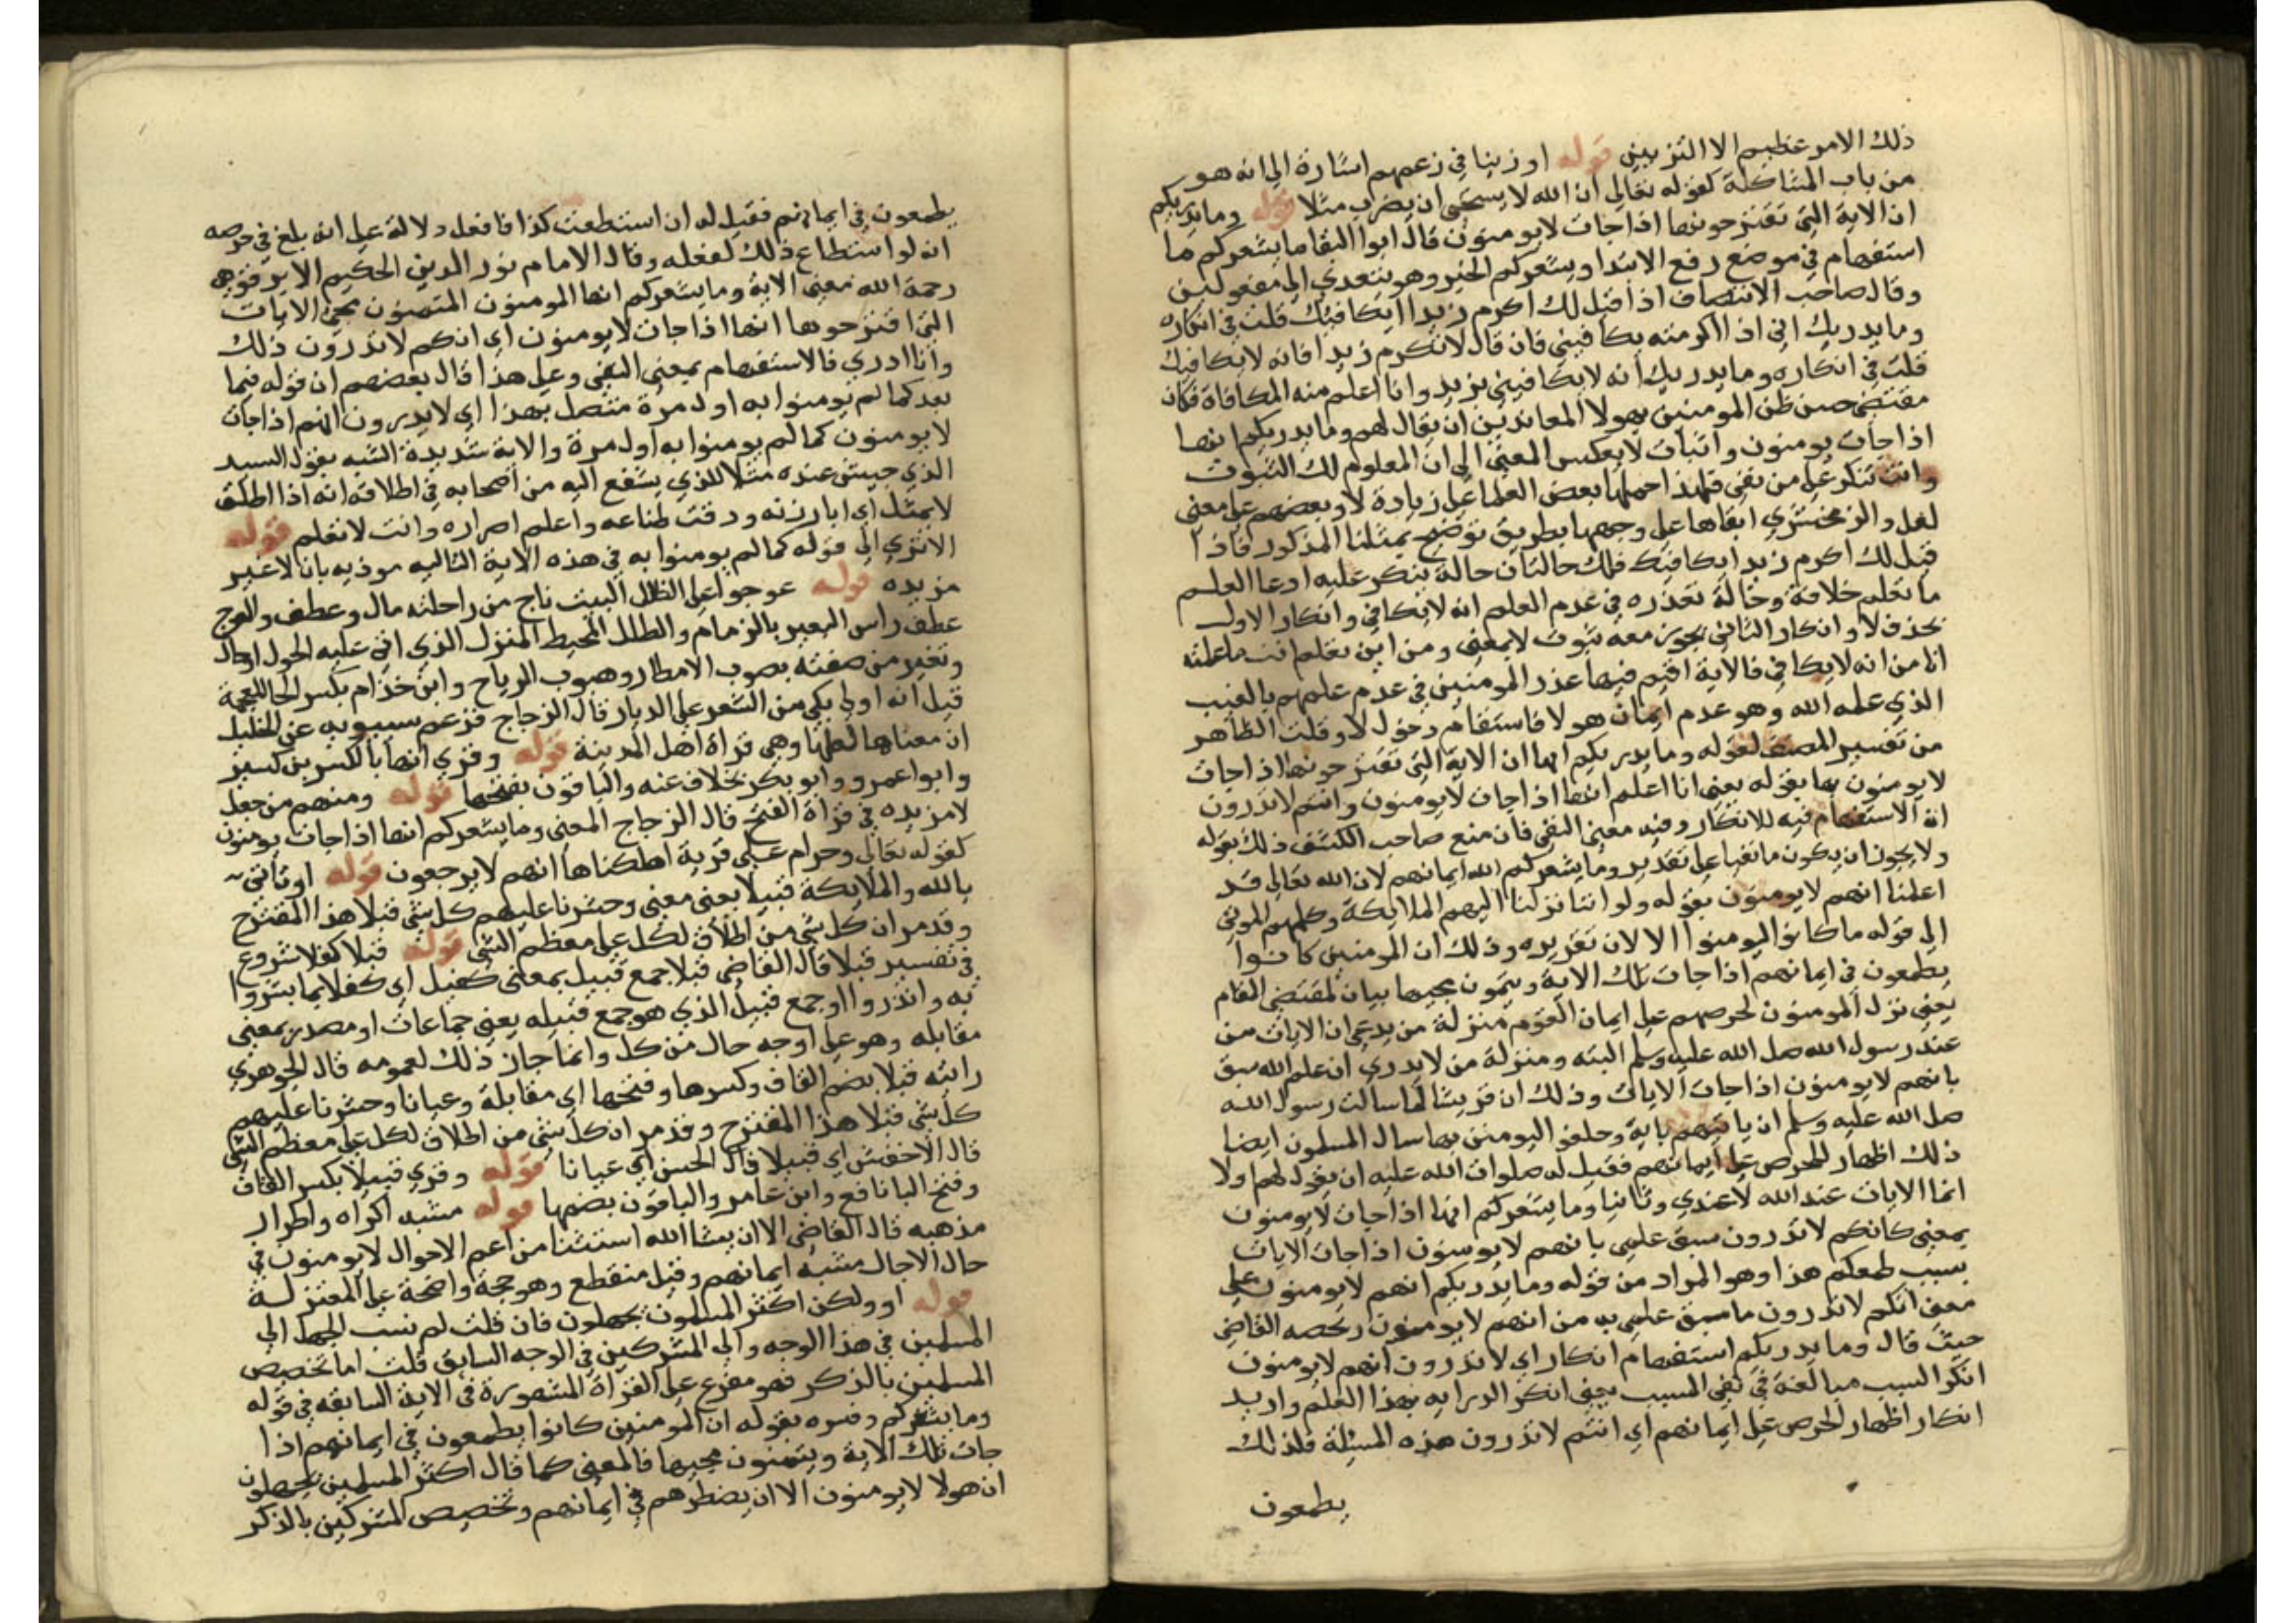 ذلك الامر عظيم الا التزيين قوله او زينا في زعمهم اشارة الى انه هو
من باب المشاكلة كقوله تعالى ان الله لا يستحيي ان يضرب مثلا قوله وما يدريكم
ان الاية التي تقترحونها اذا جات لا يومنون قال ابوا البقا ما يشعركم ما
استفهام في موضع رفع الابتدا ويشعركم الخبر وهو يتعدي الى مفعولين
وقال صاحب الانتصاف اذا قيل لك اكرم زيدا يكافيك قلت في انكاره
وما يدريك اني اذا اكرمته يكافيني فان قال لا تكرم زيدا فانه لا يكافيك
قلت في انكاره وما يدريك انه لا يكافيني يريد وانا اعلم منه المكافاة فكان
مقتضى حسن ظن المومنين بهولا المعاندين ان يقال لهم وما يدريكم انها
اذا جات يومنون واثبات لا يعكس المعنى الى ان المعلوم لك الثبوت
وانت تنكر على من نفى فلهذا حملها بعض العلما على زيادة لا وبعضهم على معنى
لعل والزمخشري ابقاها على وجهها بطريق توضح بمثلنا المذكور فاذا
قيل لك اكرم زيدا يكافيك فلك حالتان حالة ينكر عليه ادعا العلم
ما تعلم خلافه وحالة تعذره في عدم العلم انه لا يكافي وانكار الاول
بحذف لا وانكار الثاني يجوز معه ثبوت لا بمعنى ومن اين تعلم انت ما علمته
انا من انه لا يكافي فالاية اقيم فيها عذر المومنين في عدم علمهم بالغيب
الذي علمه الله وهو عدم ايمان هولا فاستقام دخول لا وقلت الظاهر
من تفسير المصنف لقوله وما يدريكم انها ان الاية التي تقترحونها اذا جات
لا يومنون بها بقوله يعني انا اعلم انها اذا جات لا يومنون وانتم لا تدرون
ان الاستفهام فيه للانكار وفيه معنى النفي فان منع صاحب الكشف ذلك بقوله
ولا يجوز ان يكون ما نفيا على تقدير وما يشعركم الله ايمانهم لان الله تعالى قد
اعلمنا انهم لا يومنون بقوله ولو اننا نزلنا اليهم الملايكة وكلمهم الموتى
الى قوله ما كانوا ليومنوا الا لان تقريره وذلك ان المومنين كانوا
يطمعون في ايمانهم اذا جات تلك الاية ويتمنون مجيها بيان لمقتضى المقام
يعني نزل المومنون لحرصهم على ايمان القوم منزلة من يدعي ان الايات من
عند رسول الله صلى الله عليه وسلم البته ومنزلة من لا يدري ان علم الله سبق
بانهم لا يومنون اذا جات الايات وذلك ان قريشا لما سالت رسول الله
صلى الله عليه وسلم ان ياتيهم باية وحلفو اليومنن بها سال المسلمون ايضا
ذلك اظهار للحرص على ايمانهم فقيل له صلوات الله عليه ان يقول لهم اولا
انما الايات عند الله لا عندي وثانيا وما يشعركم انها اذا جات لا يومنون
بمعنى كانكم لا تدرون سبق علمي بانهم لا يومنون اذا جات الايات
بسبب طمعكم هذا وهو المراد من قوله وما يدريكم انهم لا يومنون على
معنى انكم لا تدرون ما سبق علمي به من انهم لا يومنون رخصه القاضي
حيث قال وما يدريكم استفهام انكار اي لا تدرون انهم لا يومنون
انكر السبب مبالغة في نفي المسبب يعني انكر الدرايه بهذا العلم واريد
انكار اظهار الحرص على ايمانهم اي انتم لا تدرون هذه المسيلة فلذلك
يطمعون
يطمعون في ايمانهم فقيل له ان استطعت كذا فافعل دلالة على انه بلغ في حرصه
انه لو استطاع ذلك لفعله وقال الامام نور الدين الحكيم الابرقوهي
رحمة الله معنى الاية وما يشعركم انها المومنون المتمنون مجي الايات
التي اقترحوها انها اذا جات لا يومنون اي انكم لا تدرون ذلك
وانا ادري فالاستفهام بمعنى النفي وعلى هذا قال بعضهم ان قوله فيما
بعد كما لم يومنوا به اول مرة متصل بهذا اي لا يدرون انهم اذا جات
لا يومنون كما لم يومنوا به اول مرة والاية شديدة الشبه بقول السيد
الذي جيتني عنده مثلا للذي يشفع اليه من اصحابه في اطلاقه انه اذا اطلق
لا يمتثل اي ابارزته ودقت طناعه واعلم اصراره وانت لا تعلم قوله
الا ترى الى قوله كما لم يومنوا به في هذه الاية التاليه موذيه بان لا غير
مزيده قوله عوجوا على الطلل البيت ناج من راحلته مال وعطف والعوج
عطف راس البعير بالزمام والطلل المحيط المنزل الذي اتى عليه الحول احال
وتغير من صفته بصوب الامطار وهبوب الرياح وابن خذام بكسر الخا المعجمة
قيل انه اول بكي من الشعر على الديار قال الزجاج فزعم سيبويه عن الخليل
ان معناها لعلها وهي قراة اهل المدينة قوله وقري انها بالكسر بن كسير
وابوا عمرو وابو بكر بخلاف عنه والباقون بفتحها قوله ومنهم من جعل
لا مزيده في قراة الفتح قال الزجاج المعنى وما يشعركم انها اذا جات يومنون
كقوله تعالى وحرام على قرية اهلكناها انهم لا يرجعون قوله او تاتي
بالله والملايكة قبيلا يعني معنى وحشرنا عليهم كل شي قبلا هذا المقترح
وقد مر ان كل شي من اطلاق لكل على معظم الشي قوله قبلا كفلا شروع
في تفسير قبلا قال القاضي قبلا جمع قبيل بمعنى كفيل اي كفلا بما بشروا
به وانذروا او جمع قبيل الذي هو جمع قبيله يعني جماعات او مصدر بمعنى
مقابله وهو على اوجه حال من كل وانما جاز ذلك لعمومه قال الجوهري
رايته قبلا بضم القاف وكسرها وفتحها اي مقابلة وعيانا وحشرنا عليهم
كل شي قبلا هذا المقترح وقد مر ان كل شي من اطلاق لكل على معظم الشي
قال الاخفش اي قبيلا قال الحسن اي عيانا قوله وقري قبيلا بكسر القاف
وفتح البا نافع وابن عامر والباقون بضمها قوله مشيه اكراه واطرار
مذهبه قال القاضي الا ان يشا الله استثنا من اعم الاحوال لا يومنون في
حال الا حال مشيه ايمانهم وقيل منقطع وهو حجة واضحة على المعتزلة
قوله او ولكن اكثر المسلمون يجهلون فان قلت لم نسب الجهل الى
المسلمين في هذا الوجه والى المشركين في الوجه السابق قلت اما تخصيص
المسلمين بالذكر فهو مفرع على القراة المشهورة في الاية السابقه في قوله
وما يشعركم وفسره بقوله ان المومنين كانوا يطمعون في ايمانهم اذا
جات تلك الاية ويتمنون مجيها فالمعنى كما قال اكثر المسلمين يجهلون
ان هولا لا يومنون الا ان يضطرهم في ايمانهم وتخصيص المشركين بالذكر